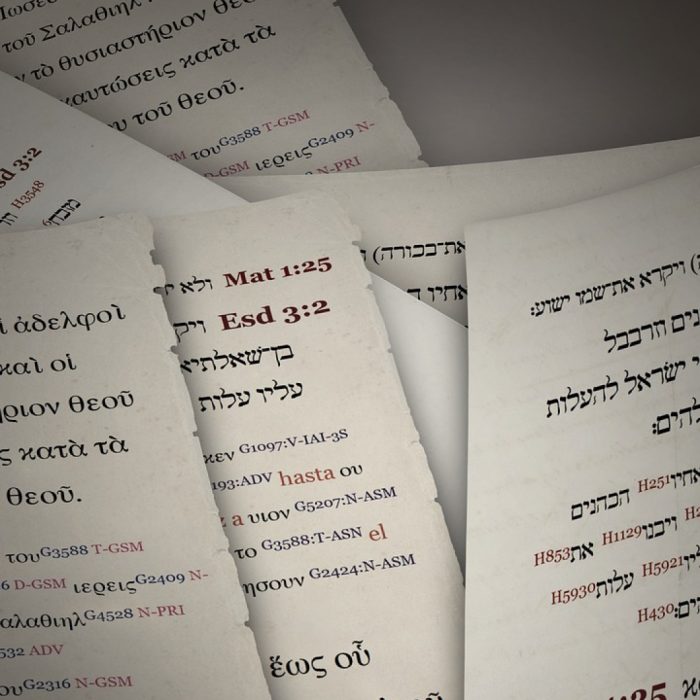 τοῦ Σαλαθιηλ
τὸ θυσιαστήριον θε
καυτώσεις κατὰ τὰ
τοῦ θεοῦ.
τουG3588 T-GSM
D-GSM ιερειςG2409 N-
N-PRI
3:2
H3548
את־בכורה)
אחיו
ἀδελφοὶ
καὶ οἱ
ριον θεοῦ
ς κατὰ τὰ
θεοῦ.
τουG3588 T-GSM
D-GSM ιερειςG2409 N-
αλαθιηλG4528 N-PRI
532 ADV
ουG2316 N-GSM
Mat 1:25 ולא
Esd 3:2 ויק
בן־שאלתיא
עליו עלות
κεν G1097:V-IAI-3S
193:ADV hasta ου
a υιον G5207:N-ASM
το G3588:T-ASN el
ησουν G2424:N-ASM
ἕως οὗ
ויקרא את־שמו ישוע:
נים וזרבבל
ישראל להעלות
להים:
אחיוH251 הכהנים
ויבנוH1129 אתH853
H5921 עלותH5930
ים:H430
1:25